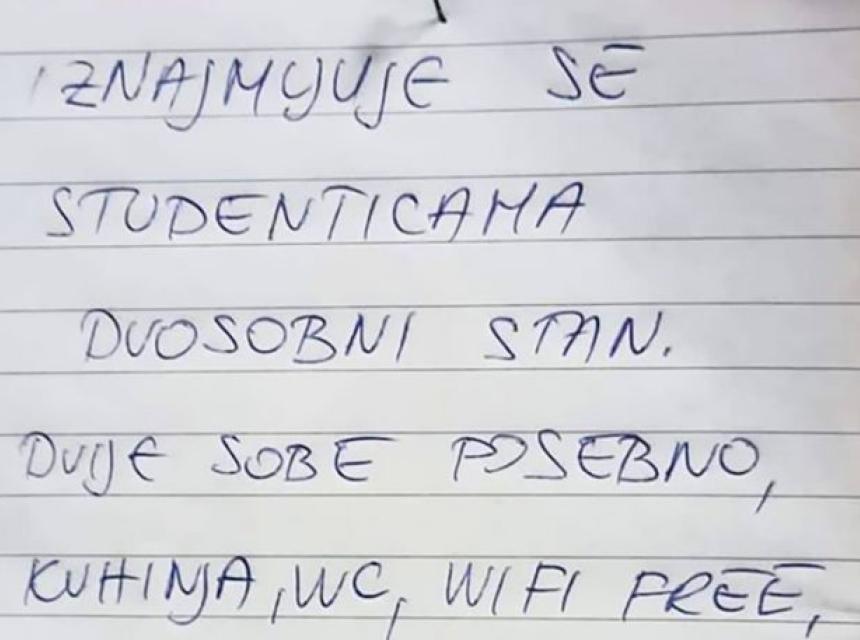 IZNAJMLJUJE SE
STUDENTICAMA
DVOSOBNI STAN.
DVIJE SOBE POSEBNO,
KUHINJA, WC, WIFI FREE,